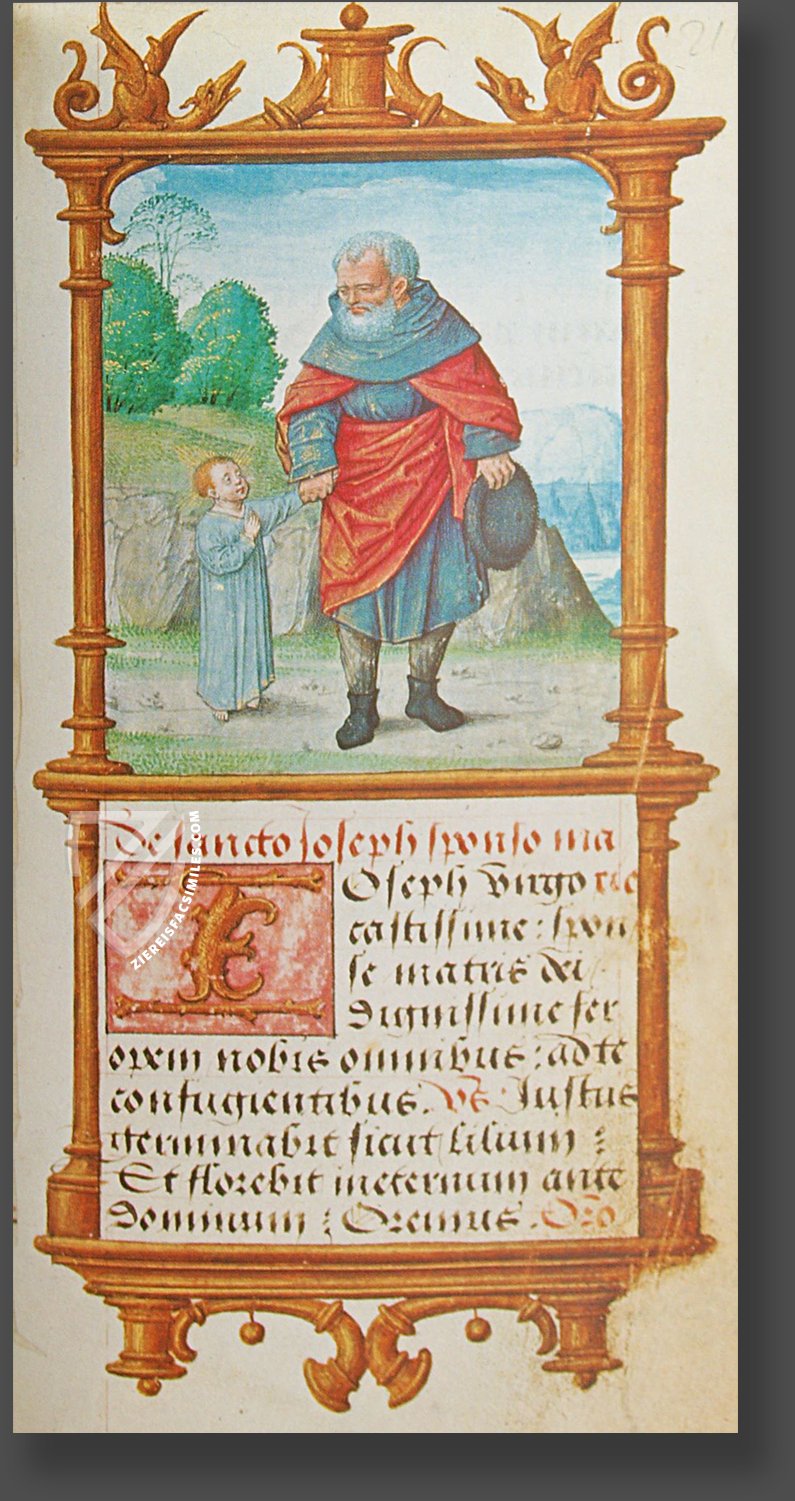 210
De sancto Joseph sponso ma
rie
Joseph virgo
castissime : spon
se matris dei
dignissime fer
opem nobis omnibus : ad te
confugientibus. Vs Justus
germinabit sicut lilium :
Et florebit ineternum ante
dominum : Oremus. Oro
ZIEREISFACSIMILES.COM